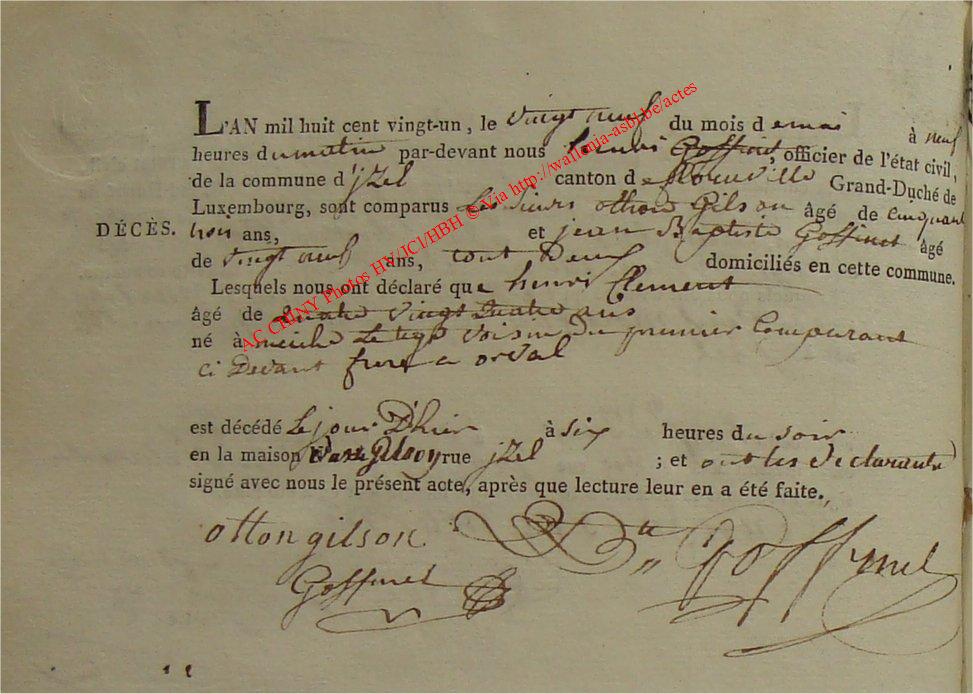 L'AN mil huit cent vingt-un, le vingt neuf du mois de mai à neuf
heures du matin par-devant nous henri Goffinet, officier de l'état civil,
de la commune d jzel canton de florenville Grand-Duché de
Luxembourg, sont comparus les sieurs otton Gilson âgé de cinquante
DÉCÈS.
trois ans, et jean Baptiste Goffinet âgé
de vingt neuf ans, tout Deux domiciliés en cette commune.
Lesquels nous ont déclaré que henri Clement
âgé de quatre vingt quatre ans
né à voisin du premier Comparant
ci Devant frere a orval
est décédé le jour D'hier à six heures du soir
en la maison Gilson rue jzel ; et ont les Declarants
signé avec nous le présent acte, après que lecture leur en a été faite.
otton gilson
Goffinet
Goffinet
AC CHINY Photos HY/JCl/HBH © Via http://wallonia-asbl.be/actes